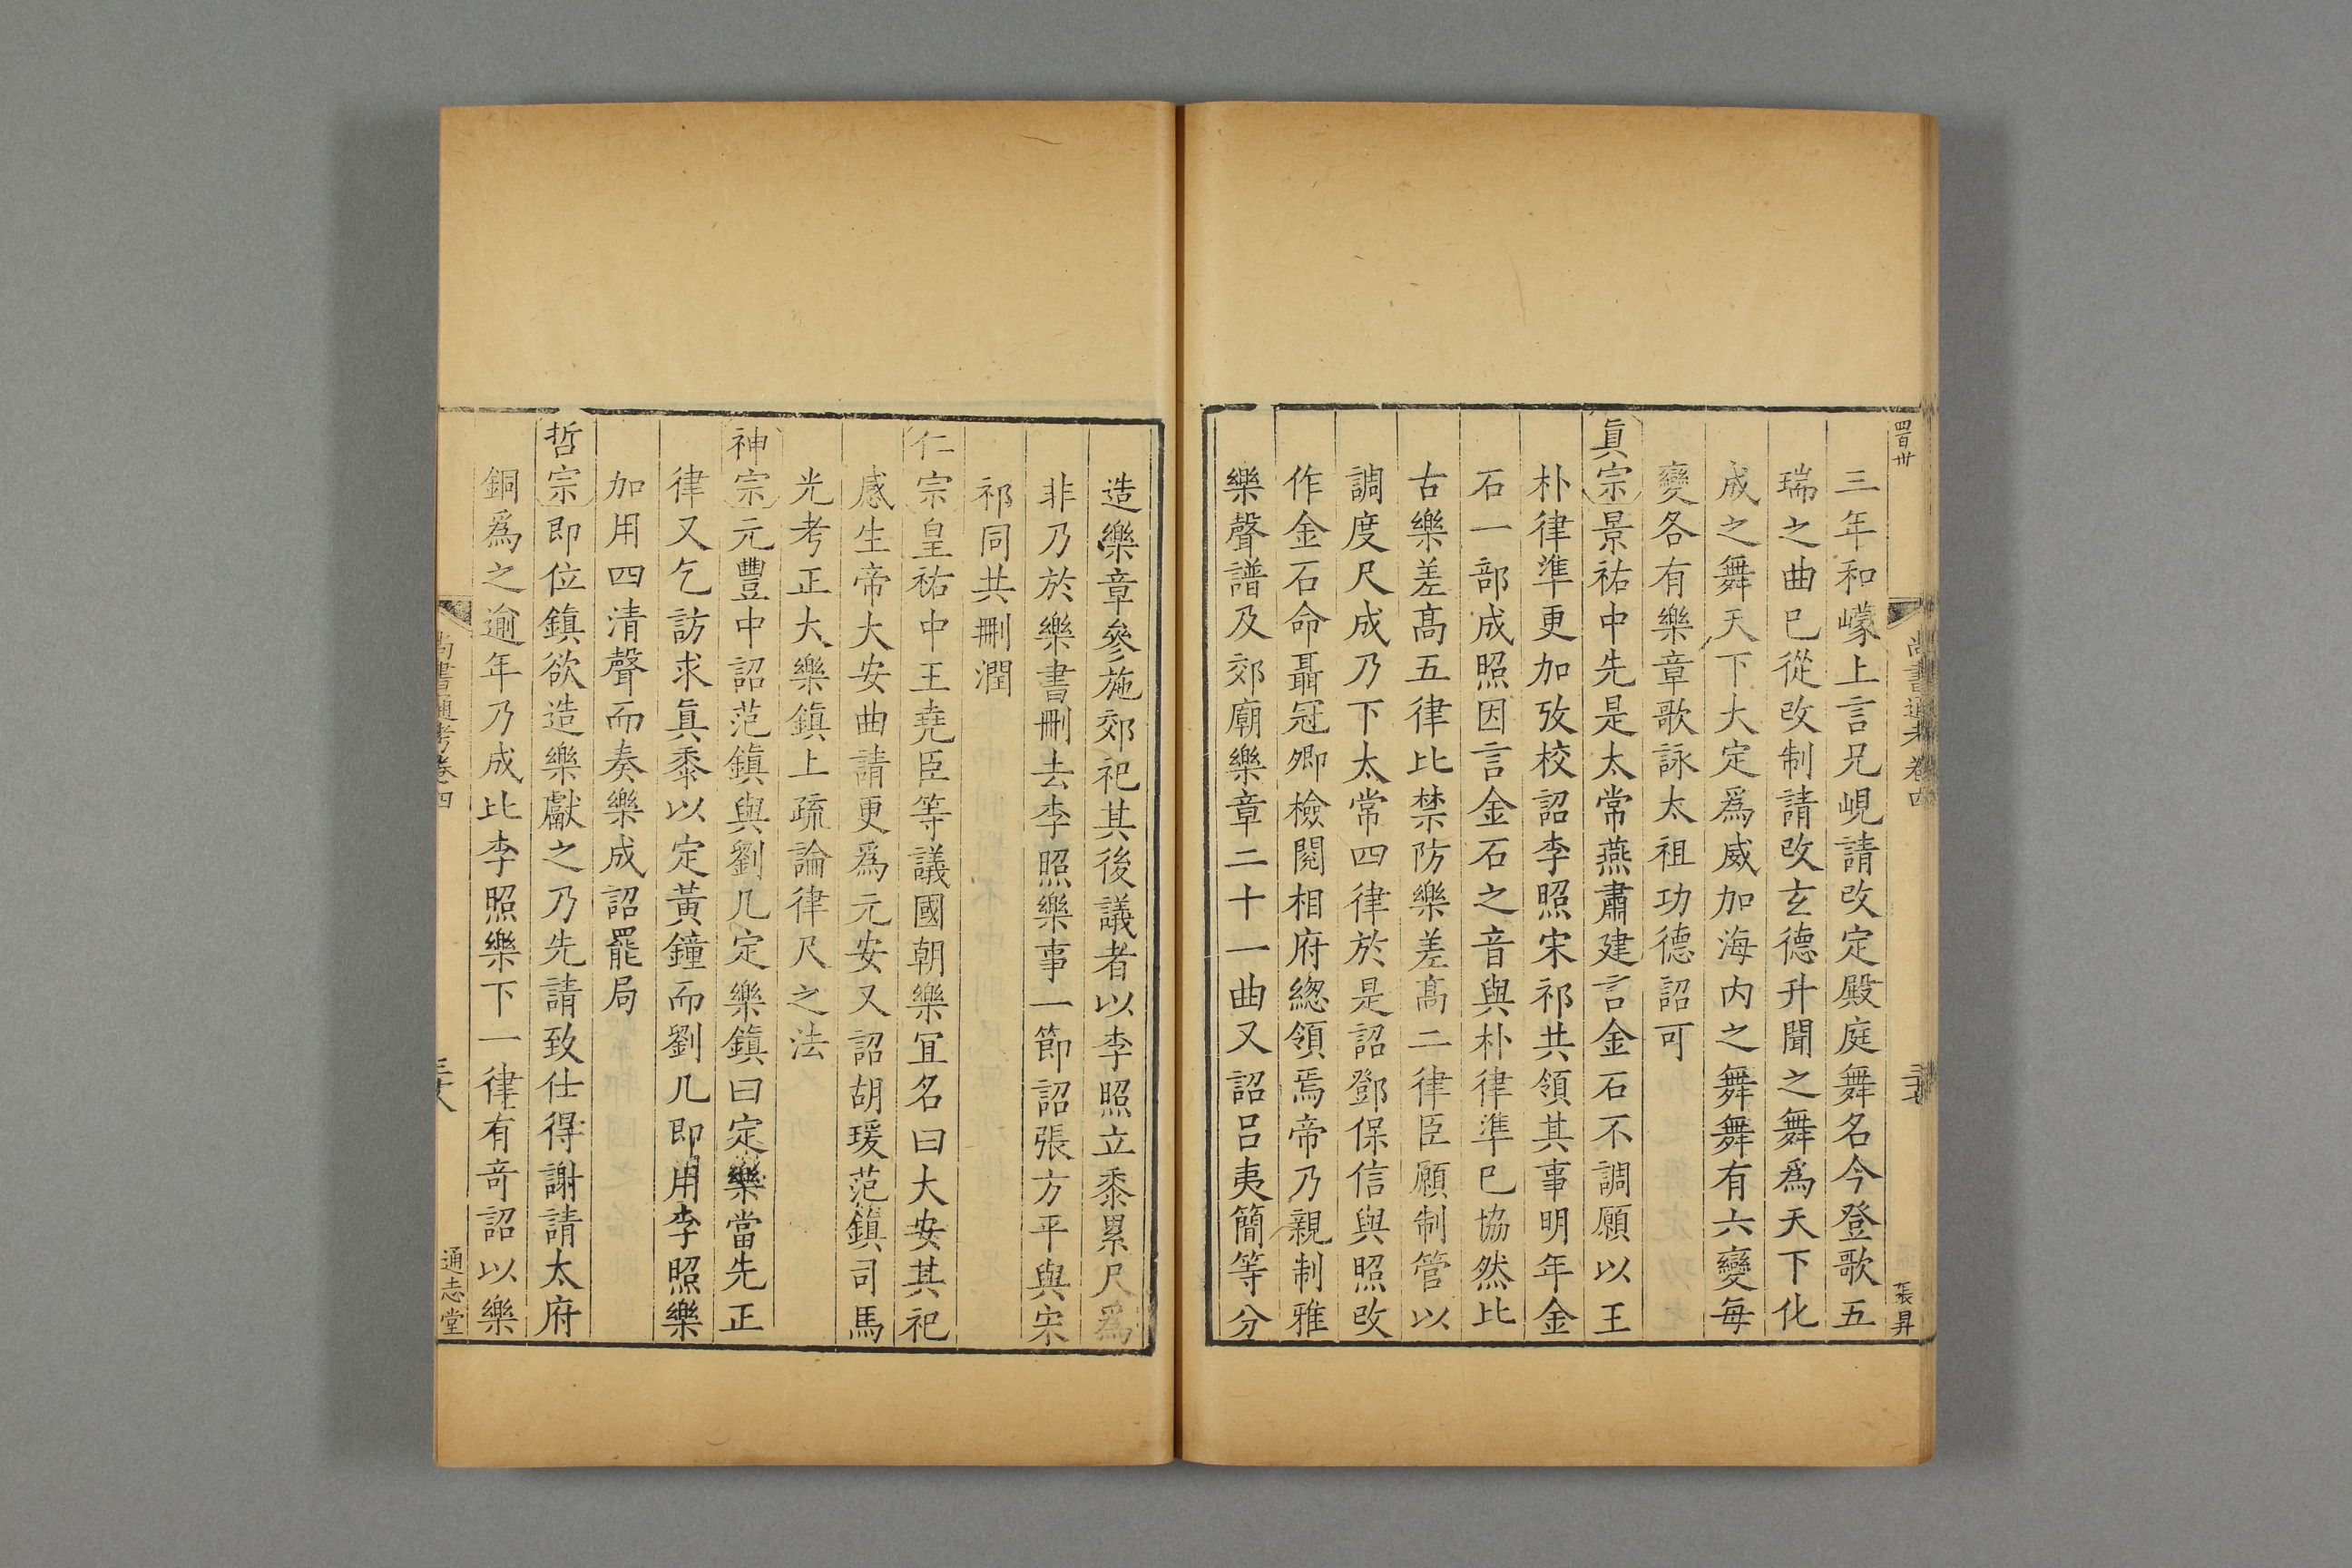 四百卅
尚書通考卷四
張昇
三年和㠓上言兄峴請改定殿庭舞名今登歌五
瑞之曲已從改制請改玄德升聞之舞爲天下化
成之舞天下大定爲威加海内之舞舞有六變每
變各有樂章歌詠太祖功德詔可
眞宗景祐中先是太常燕肅建言金石不調願以王
朴律準更加攷校詔李照宋祁共領其事明年金
石一部成照因言金石之音與朴律準已協然比
古樂差髙五律比禁防樂差髙二律臣願制管以
調度尺成乃下太常四律於是詔鄧保信與照改
作金石命聶冠卿檢閱相府緫領焉帝乃親制雅
樂聲譜及郊廟樂章二十一曲又詔吕夷簡等分
造樂章參施郊祀其後議者以李照立黍累尺爲
非乃於樂書刪去李照樂事一節詔張方平與宋
祁同共刪潤
仁宗皇祐中王堯臣等議國朝樂宜名曰大安其祀
感生帝大安曲請更爲元安又詔胡瑗范鎮司馬
光考正大樂鎮上疏論律尺之法
神宗元豐中詔范鎮與劉几定樂鎮曰定樂當先正
律又乞訪求眞黍以定黃鐘而劉几即用李照樂
加用四清聲而奏樂成詔罷局
哲宗即位鎮欲造樂獻之乃先請致仕得謝請太府
銅爲之逾年乃成比李照樂下一律有奇詔以樂
尚書通考卷四
通志堂